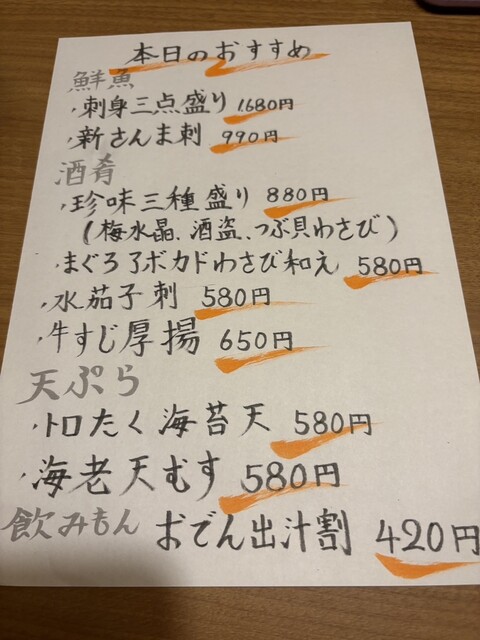 本日のおすすめ
鮮魚
・刺身三点盛り 1.680円
・新さんま刺 990円
酒肴
・珍味三種盛り 880円
(梅水晶、酒盗、つぶ貝わさび)
・まぐろアボカドわさび和え 580円
・水茄子刺 580円
・牛すじ厚揚 650円
天ぷら
・トロたく海苔天 580円
・海老天むす 580円
飲みもん おでん出汁割 420円